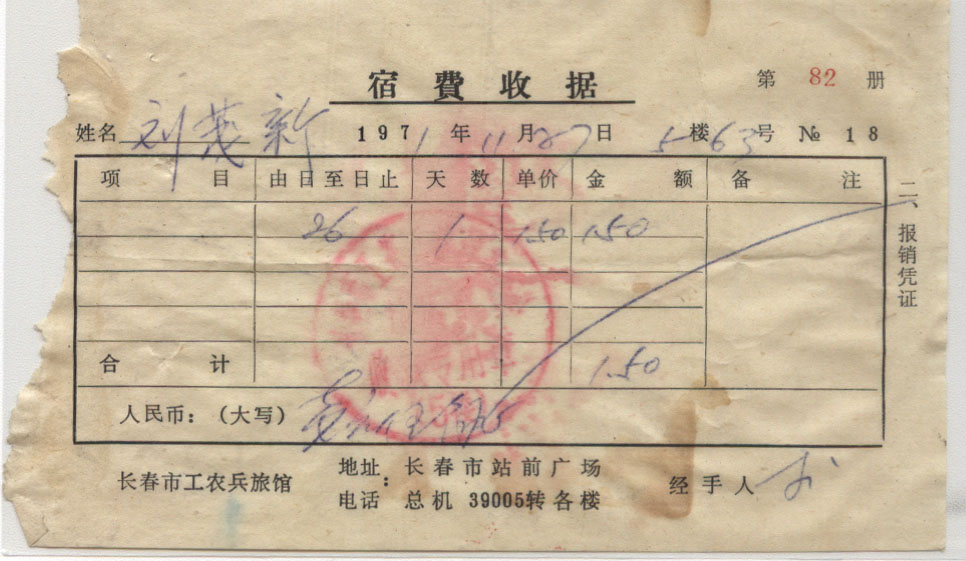 宿費收据
第 82 册
姓名 刘茂新 1971年11月27日 5楼63号 № 18
项目 由日至日止 天数 单价 金额 备注
26 1 1.50 1.50
合计 1.50
人民币：（大写）
二、报销凭证
长春市工农兵旅馆
地址：长春市站前广场
电话：总机 39005转各楼
经手人